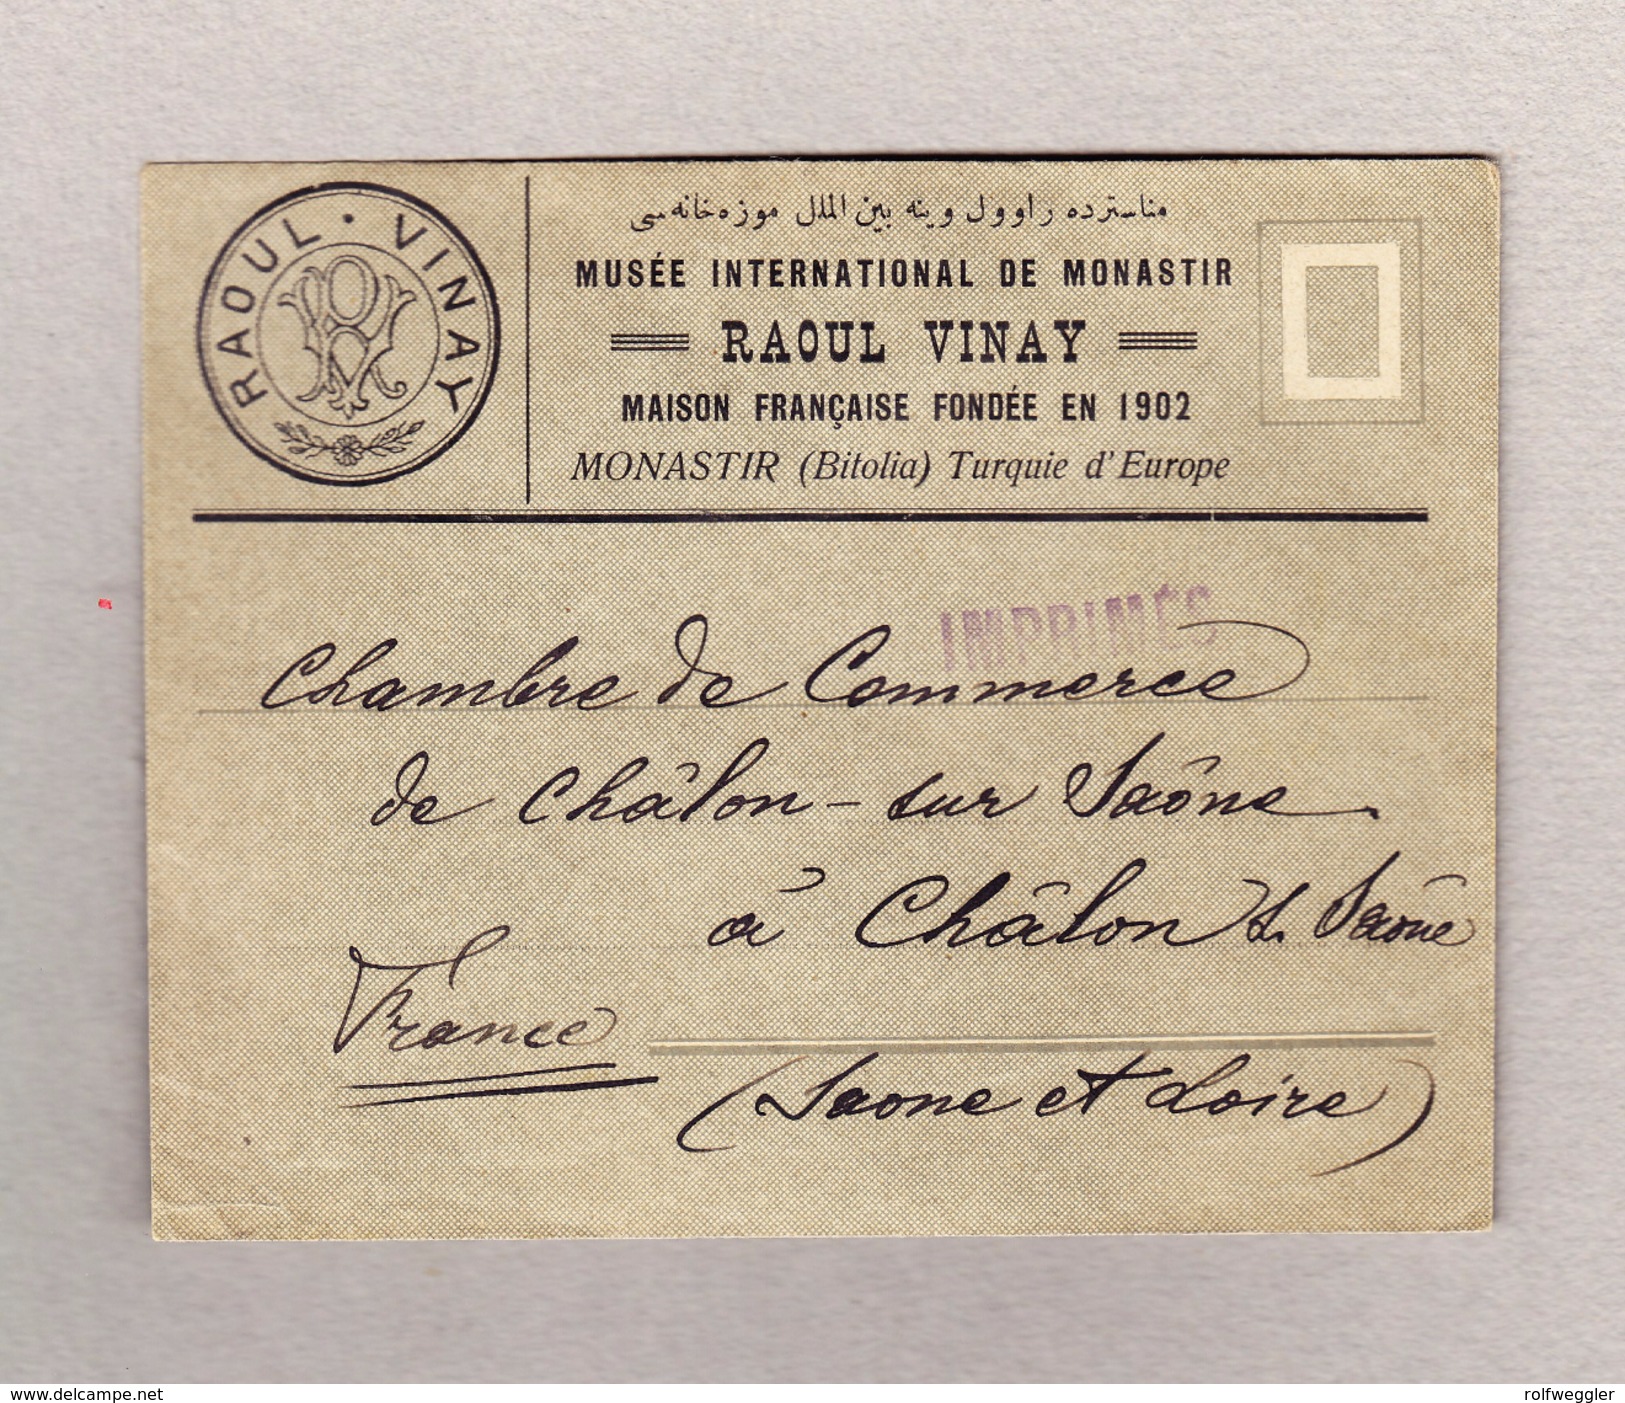 RAOUL · VINAY
RV
مناسترده راوول وينه بين الملل موزه خانه سى
MUSÉE INTERNATIONAL DE MONASTIR
RAOUL VINAY
MAISON FRANÇAISE FONDÉE EN 1902
MONASTIR (Bitolia) Turquie d'Europe
IMPRIMÉS
Chambre de Commerce
de Châlon-sur Saône
à Châlon s. Saône
France
(Saone et Loire)
www.delcampe.net
rolfweggler